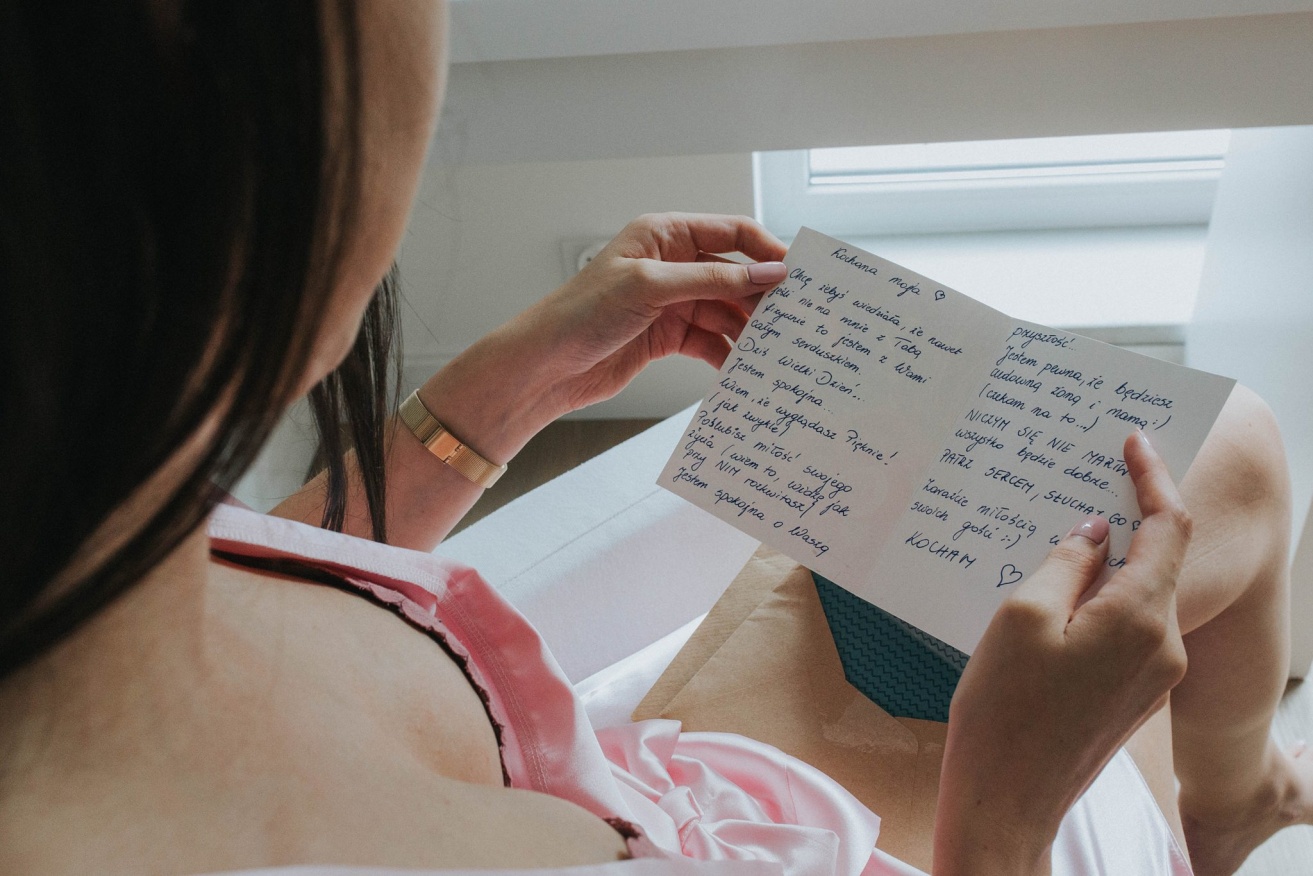 Kochana moja ♡
Chcę żebyś wiedziała, że nawet
jeśli nie ma mnie z Tobą
fizycznie to jestem z Wami
całym serduszkiem.
Dziś Wielki Dzień...
Jestem spokojna...
Wiem, że wyglądasz Pięknie!
(jak zwykle)
Poślubisz miłość swojego
życia (wiem to, widzę jak
przy NIM rozkwitasz)
Jestem spokojna o Waszą
przyszłość...
Jestem pewna, że będziesz
cudowną żoną i mamą :)
(czekam na to...)
NICZYM SIĘ NIE MARTW
wszystko będzie dobrze...
PATRZ SERCEM, SŁUCHAJ GO ♡
Zaraźcie miłością
swoich gości :-)
KOCHAM
♡